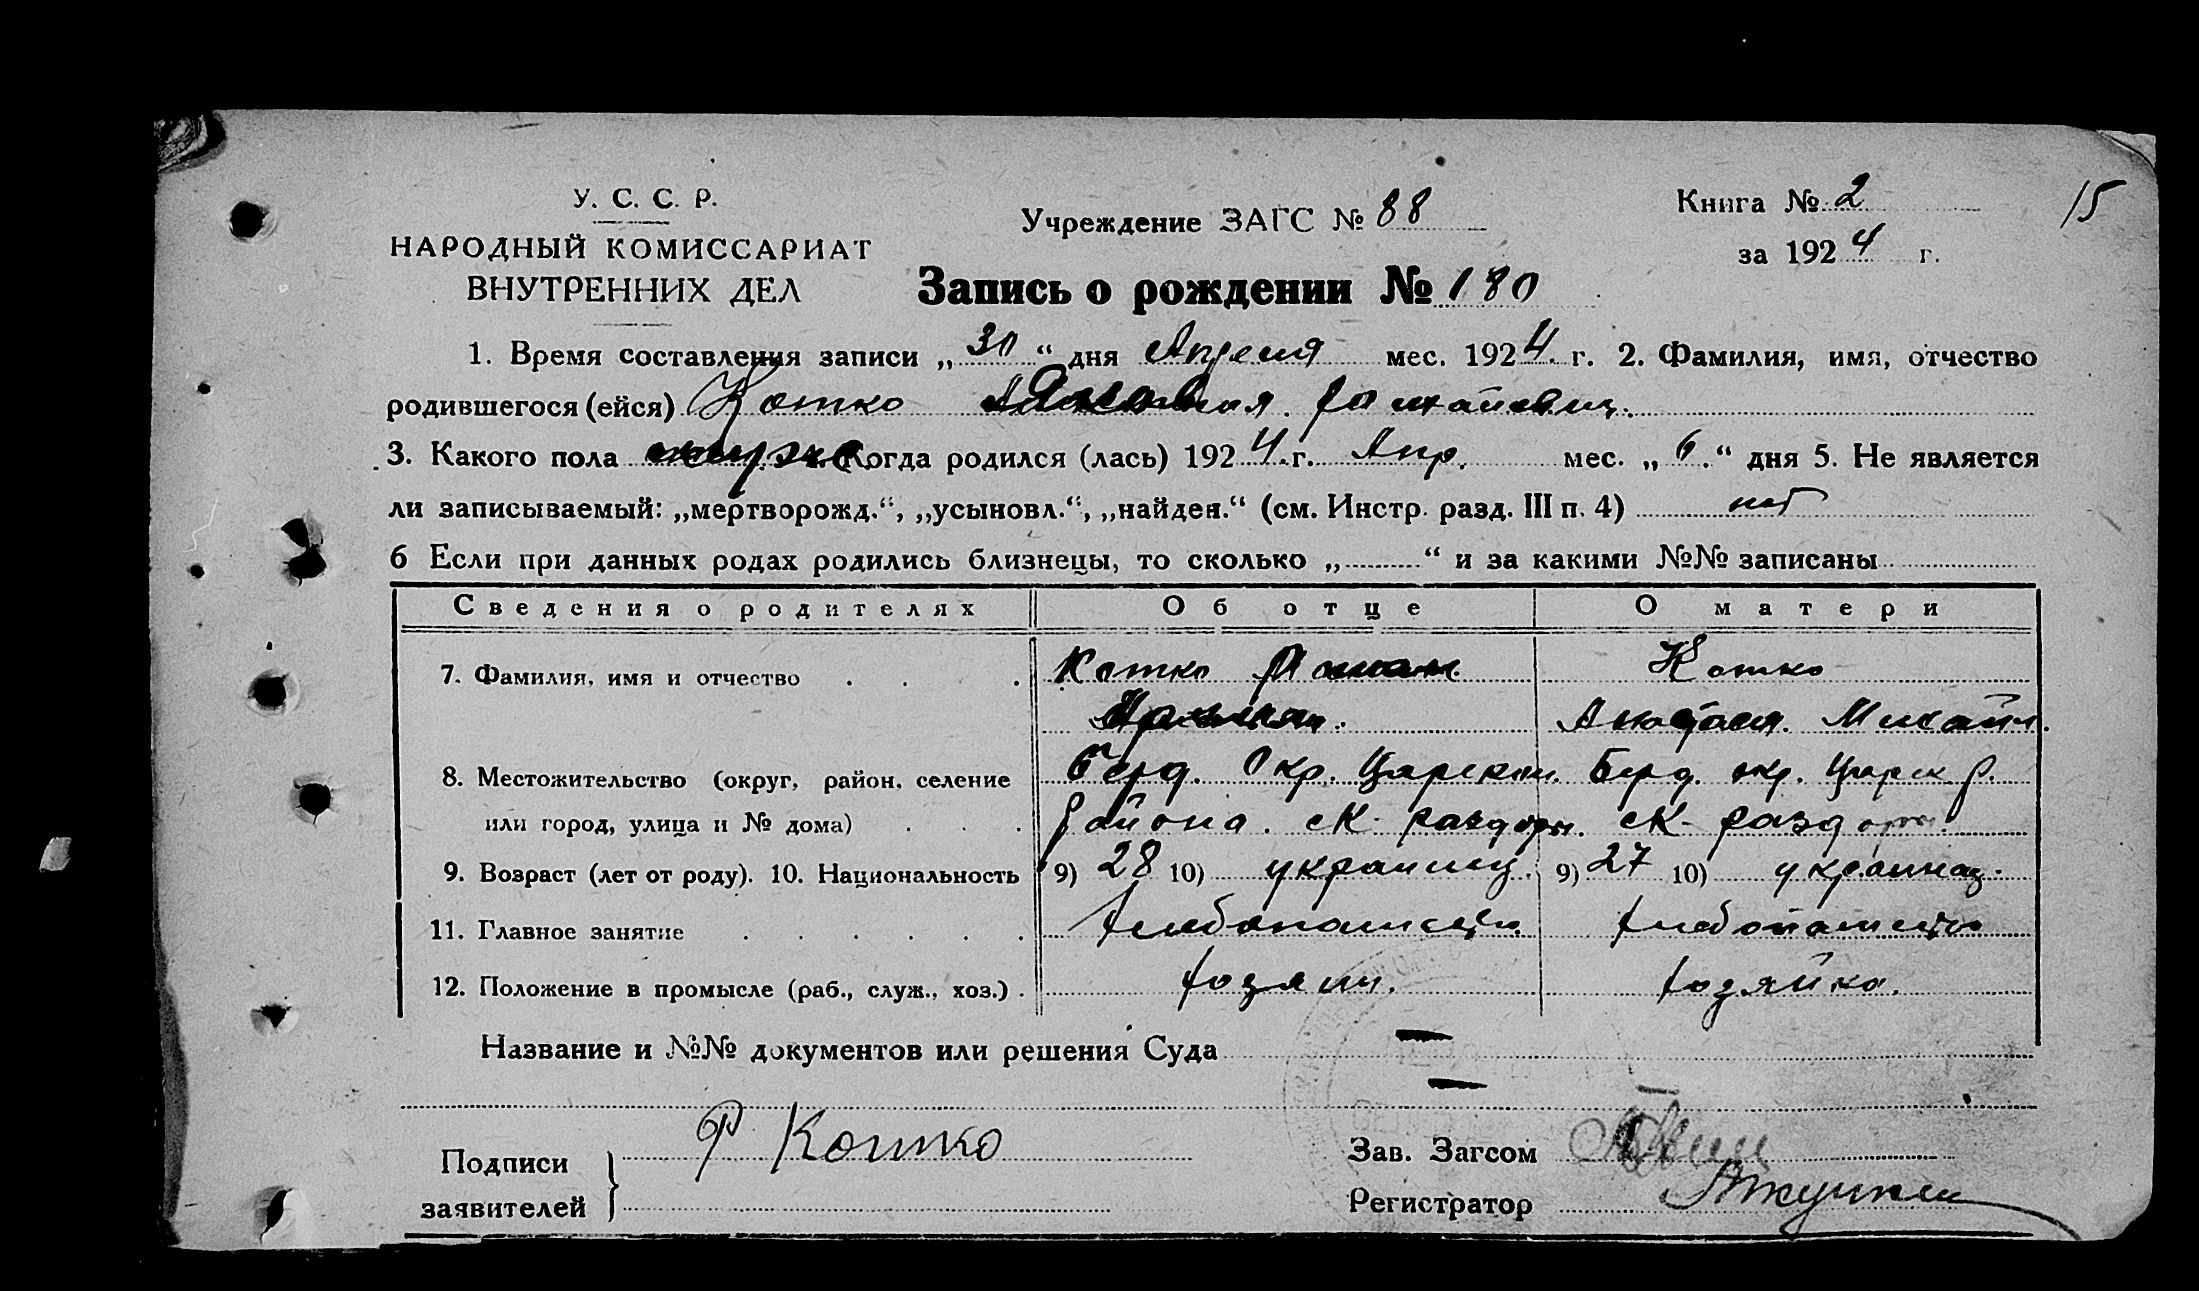 У. С. С. Р.
НАРОДНЫЙ КОМИССАРИАТ
ВНУТРЕННИХ ДЕЛ
Учреждение ЗАГС № 88
Книга № 2
за 1924 г.
15
Запись о рождении № 180
1. Время составления записи „30“ дня Апреля мес. 1924 г. 2. Фамилия, имя, отчество
родившегося (ейся) Котко
3. Какого пола муж. Когда родился (лась) 1924 г. Апр. мес. „6.“ дня 5. Не является
ли записываемый: „мертворожд.“, „усыновл.“, „найден.“ (см. Инстр. разд. III п. 4) нет
6 Если при данных родах родились близнецы, то сколько „ “ и за какими №№ записаны
Сведения о родителях Об отце О матери
7. Фамилия, имя и отчество Котко Роман Котко
Анастасия Михайл.
8. Местожительство (округ, район, селение Берд. Окр. Царекон. Берд. окр. Царек р.
или город, улица и № дома) района. ск. раздоры. ск. раздоры.
9. Возраст (лет от роду). 10. Национальность 9) 28 10) украинец. 9) 27 10) украинка.
11. Главное занятие хлебопашец хлебопашец
12. Положение в промысле (раб., служ., хоз.) хозяин. хозяйка.
Название и №№ документов или решения Суда —
—
Подписи заявителей Р Котко
Зав. Загсом
Регистратор